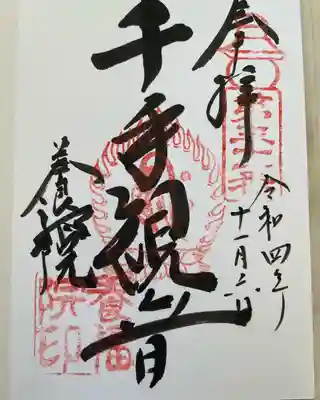 奉拝
令和四年
十一月二日
千手観音
養福院
養福
院印